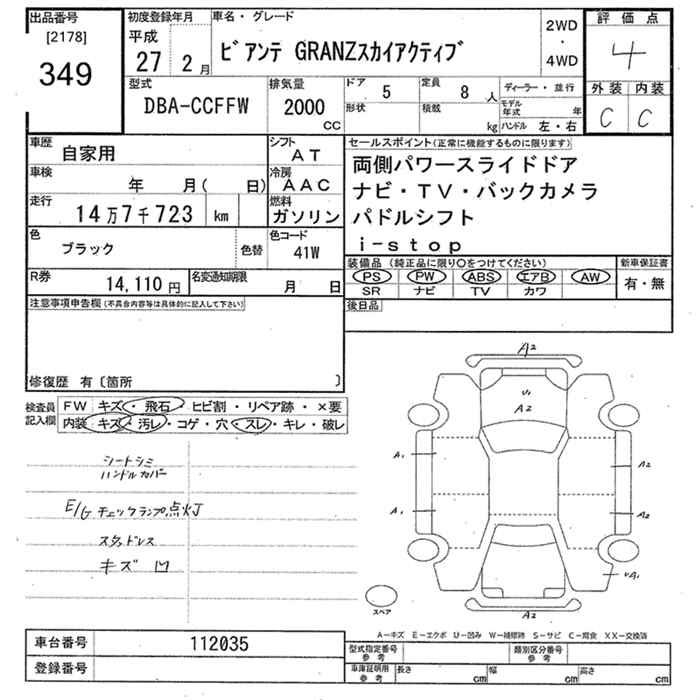 出品番号
[2178]
349
初度登録年月
平成
27 2月
車名・グレード
ビアンテ GRANZスカイアクティブ
2WD
・
4WD
評価点
4
外装 内装
C C
型式
DBA-CCFFW
排気量
2000
CC
ドア 5
形状
定員 8 人
積載 kg
ディーラー・並行
モデル年式 年
ハンドル 左・右
車歴 自家用
シフト AT
車検 年 月( 日)
冷房 AAC
走行 14万7千723 km
燃料 ガソリン
色 ブラック 色替
色コード 41W
R券 14,110 円
名変通知期限 月 日
セールスポイント(正常に機能するものに限ります)
両側パワースライドドア
ナビ・TV・バックカメラ
パドルシフト
i-stop
装備品(純正品に限り○をつけてください)
新車保証書
PS PW ABS エアB AW
有・無
SR ナビ TV カワ
後日品
注意事項申告欄(不具合内容等は具体的に記入して下さい)
修復歴 有〔箇所 〕
検査員記入欄
FW キズ・飛石・ヒビ割・リペア跡・×要
内装 キズ・汚レ・コゲ・穴・スレ・キレ・破レ
シートシミ
ハンドルカバー
E/G チェックランプ点灯
スタッドレス
キズ 凹
A2
U1
A2
A1 A2
A1 A2
UA1
A2
スペア
A-キズ E-エクボ U-凹み W-補修跡 S-サビ C-腐食 XX-交換済
車台番号 112035
登録番号
型式指定番号 参考
類別区分番号 参考
車庫証明用 参考
長さ cm
幅 cm
高さ cm